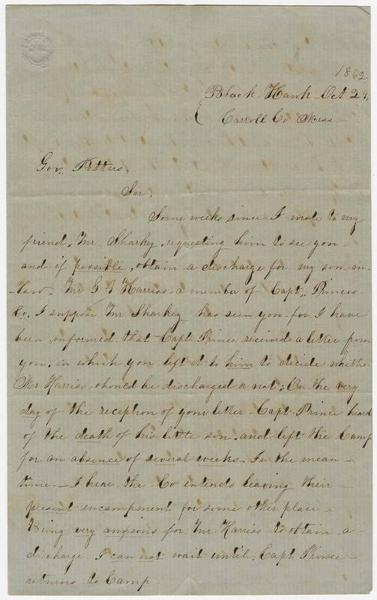 1862
Black Hawk Oct 29,
Carroll Co Miss
Gov, Pettus,
Sir,
Some weeks since I wrote to my
friend, Mr Sharkey, requesting him to see you
and if possible, obtain a discharge for my son-in-
law. Mr G Harriss a member of Capt, Princes
Co, I suppose Mr Sharkey has seen you for I have
been informed that Capt Prince received a letter from
you, in which you left it to him to decide whether
Mr Harriss should be discharged or not, On the very
day of the reception of your letter Capt Prince heard
of the death of his little son, and left the Camp
for an absence of several weeks. In the mean-
time—I hear the Co intends leaving their
present encampment for some other place
Being very anxious for Mr Harriss to obtain a
discharge I can not wait until Capt Prince
returns to Camp